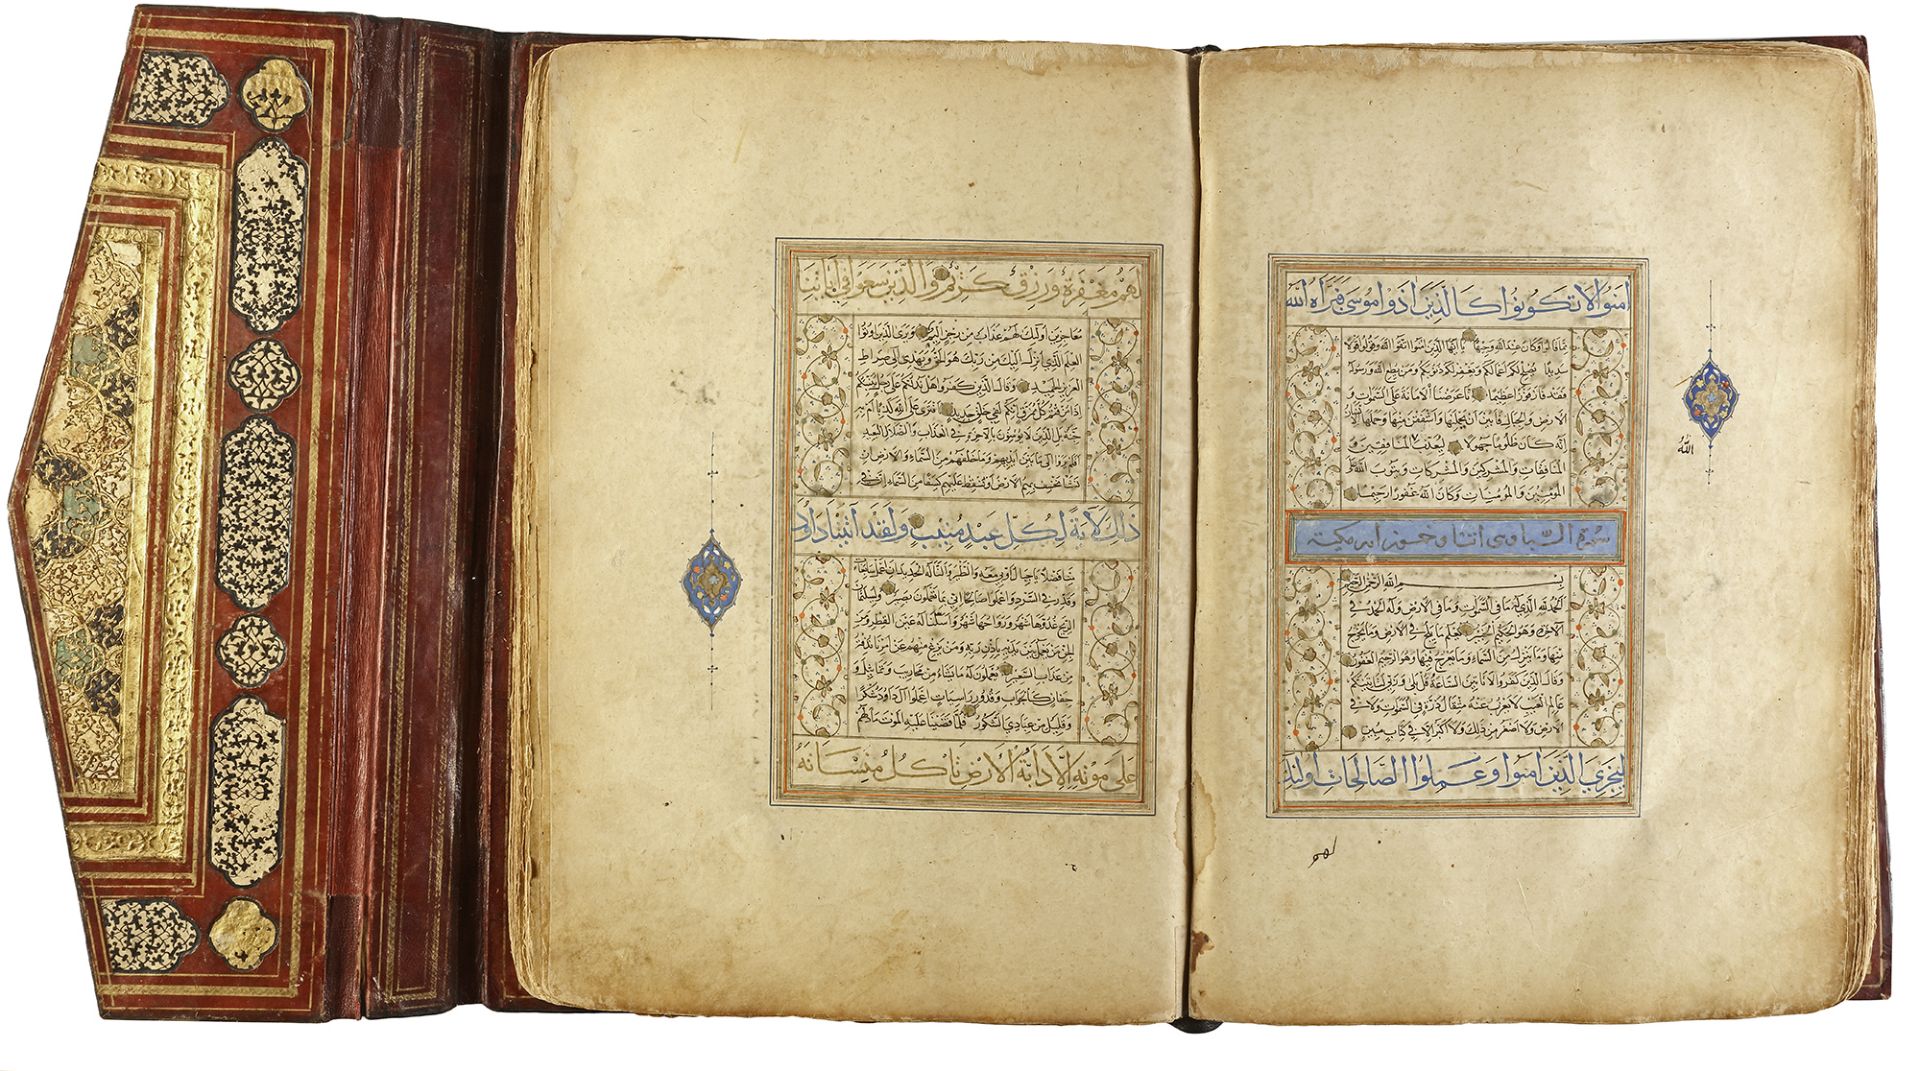 امنوا لا تكونوا كالذين اذوا موسى فبراه الله
مما قالوا وكان عند الله وجيها يا ايها الذين امنوا اتقوا الله وقولوا قولا
سديدا يصلح لكم اعمالكم ويغفر لكم ذنوبكم ومن يطع الله ورسوله
فقد فاز فوزا عظيما انا عرضنا الامانة على السموات و
الارض والجبال فابين ان يحملنها واشفقن منها وحملها الانسان
انه كان ظلوما جهولا ليعذب الله المنافقين و
المنافقات والمشركين والمشركات ويتوب الله على
المؤمنين والمؤمنات وكان الله غفورا رحيما
سورة السبا وهى اثنا وخمسون ايه مكية
بسم الله الرحمن الرحيم
الحمد لله الذي له ما في السموات وما في الارض وله الحمد في
الاخرة وهو الحكيم الخبير يعلم ما يلج في الارض وما يخرج
منها وما ينزل من السماء وما يعرج فيها وهو الرحيم الغفور
وقال الذين كفروا لا تاتينا الساعة قل بلى وربي لتاتينكم
عالم الغيب لا يعزب عنه مثقال ذرة في السموات ولا في
الارض ولا اصغر من ذلك ولا اكبر الا في كتاب مبين
ليجزي الذين امنوا وعملوا الصالحات اولئك
الله
لهم
لهم مغفرة ورزق كريم والذين سعوا في اياتنا
معاجزين اولئك لهم عذاب من رجز اليم ويرى الذين اوتوا
العلم الذي انزل اليك من ربك هو الحق ويهدي الى صراط
العزيز الحميد وقال الذين كفروا هل ندلكم على رجل ينبئكم
اذا مزقتم كل ممزق انكم لفي خلق جديد افترى على الله كذبا ام به
جنة بل الذين لا يؤمنون بالاخرة في العذاب والضلال البعيد
افلم يروا الى ما بين ايديهم وما خلفهم من السماء والارض ان
نشا نخسف بهم الارض او نسقط عليهم كسفا من السماء ان في
ذلك لاية لكل عبد منيب ولقد اتينا داود
منا فضلا يا جبال اوبي معه والطير والنا له الحديد ان اعمل سابغات
وقدر في السرد واعملوا صالحا اني بما تعملون بصير ولسليمان
الريح غدوها شهر ورواحها شهر واسلنا له عين القطر ومن
الجن من يعمل بين يديه باذن ربه ومن يزغ منهم عن امرنا نذقه
من عذاب السعير يعملون له ما يشاء من محاريب وتماثيل و
جفان كالجواب وقدور راسيات اعملوا ال داود شكرا
وقليل من عبادي الشكور فلما قضينا عليه الموت ما دلهم
على موته الا دابة الارض تاكل منساته